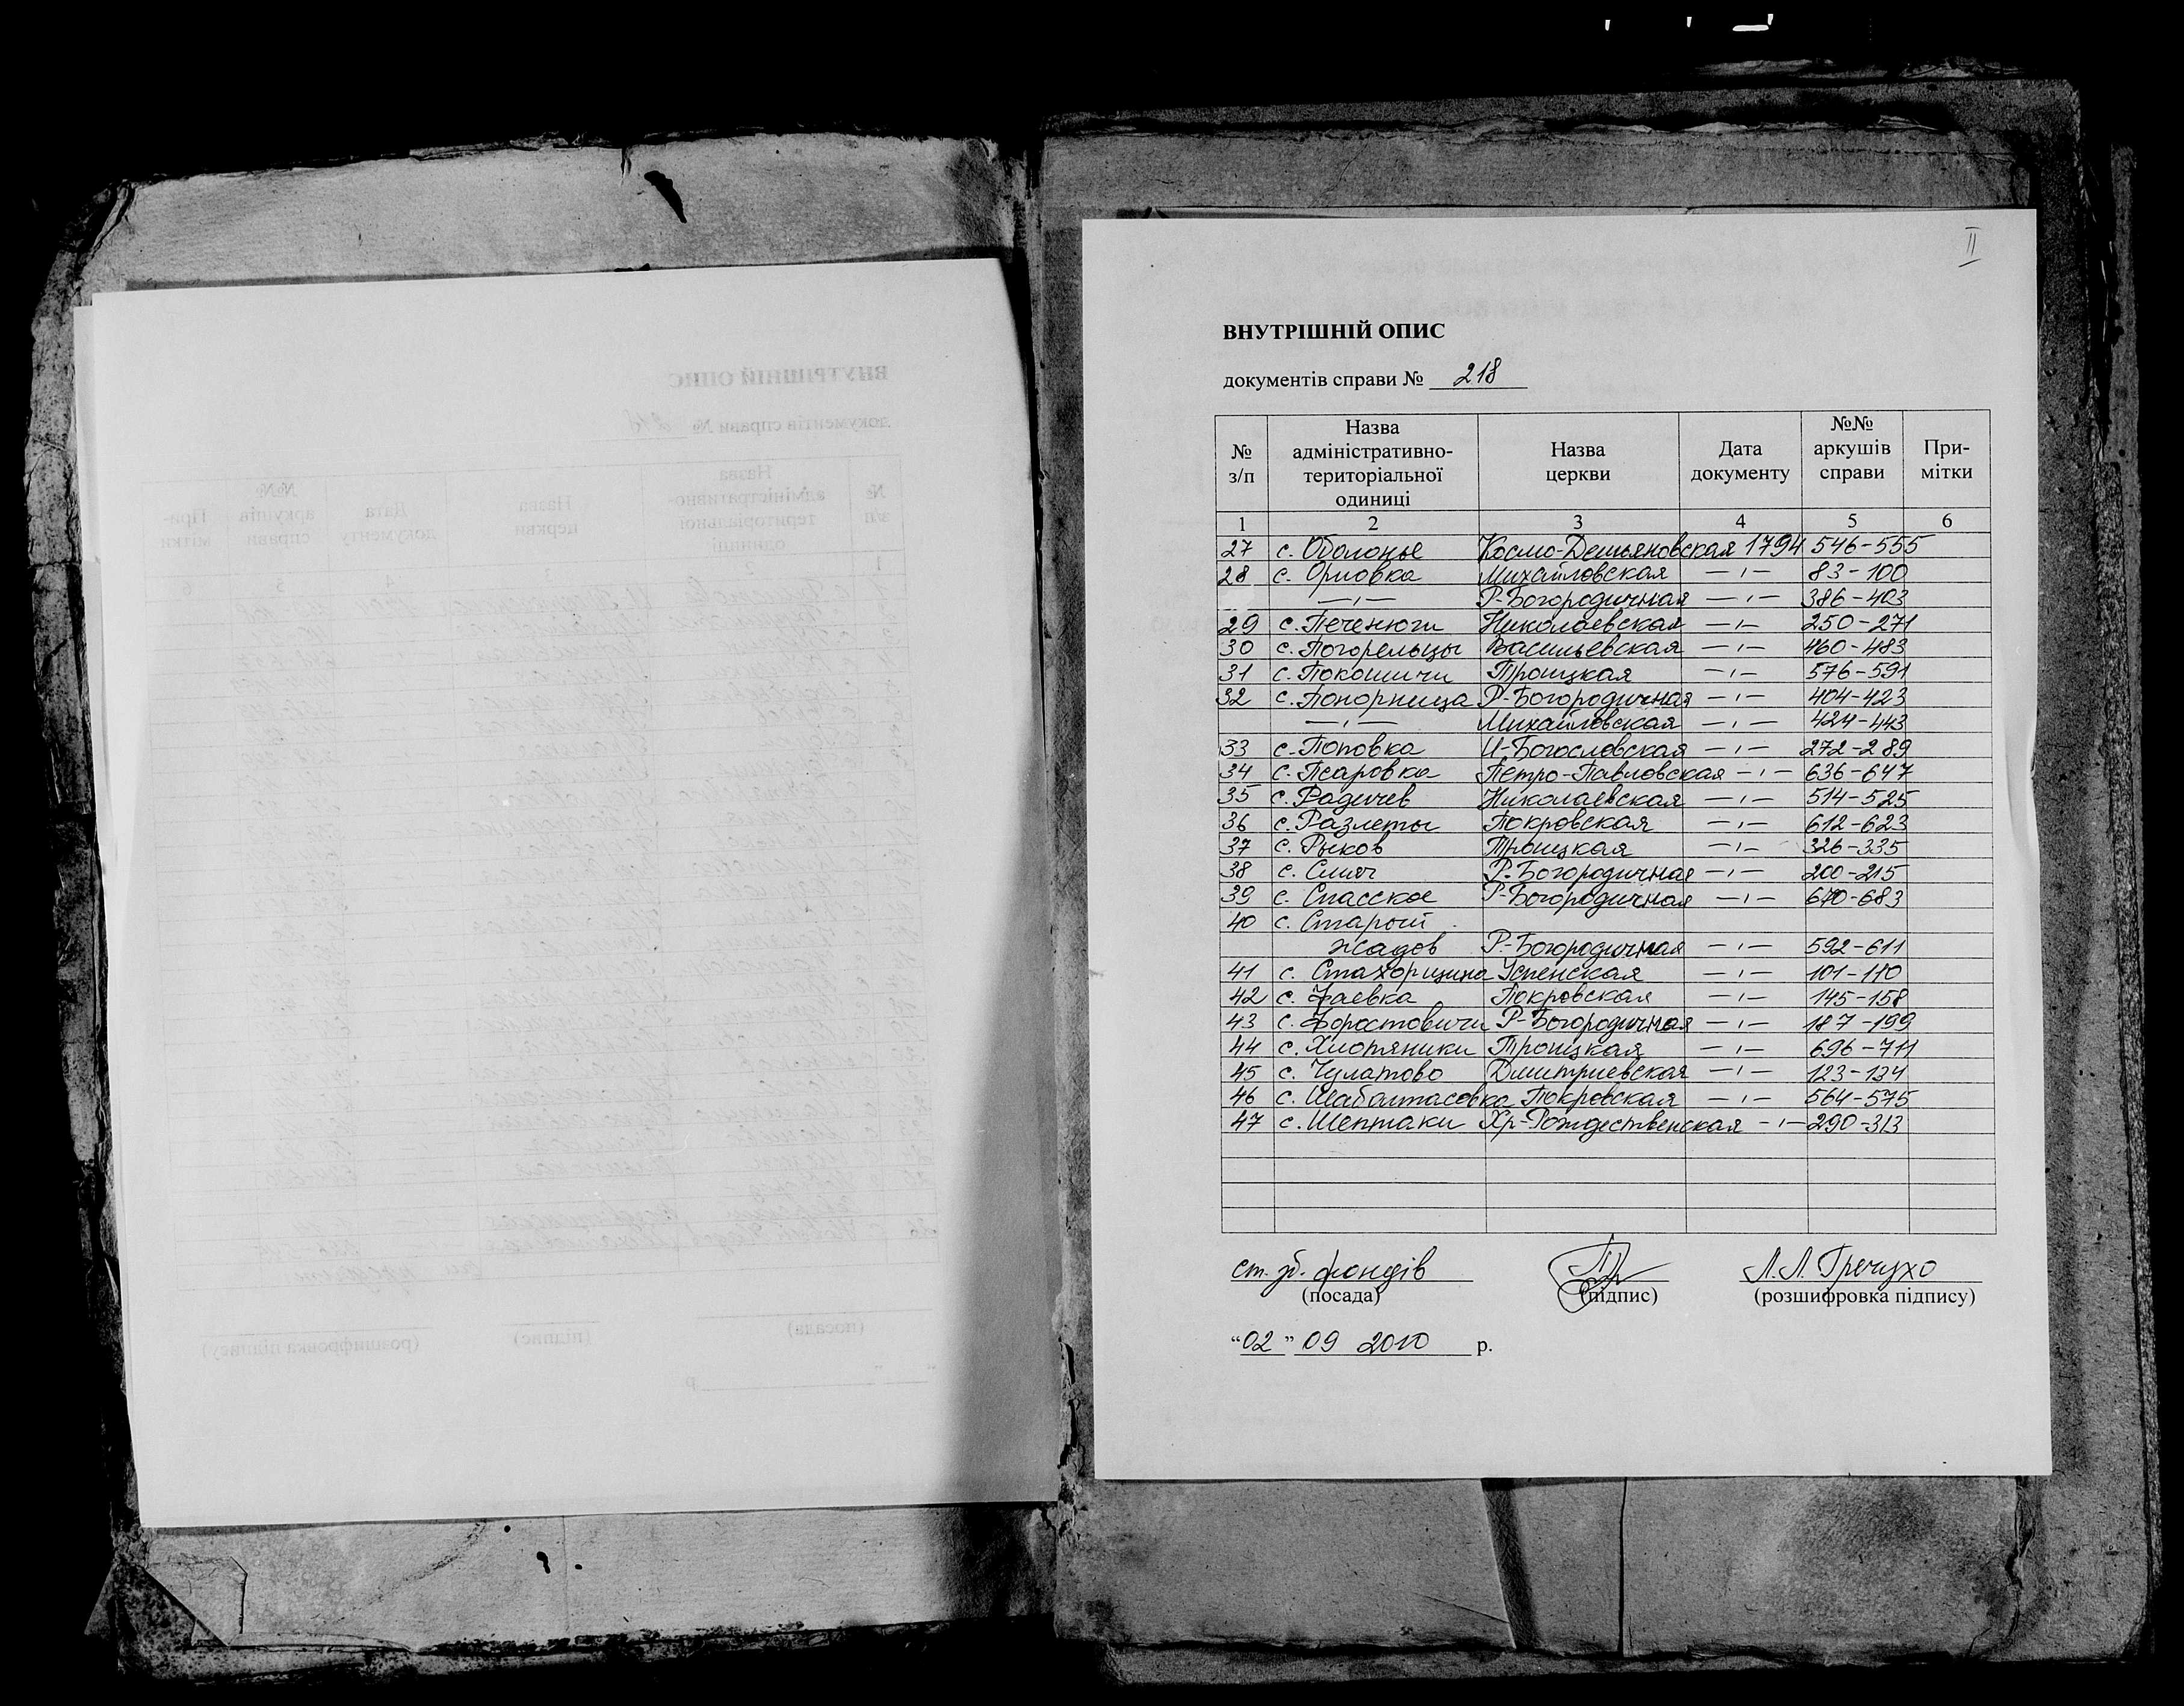 II
ВНУТРІШНІЙ ОПИС
документів справи № 218
№ з/п | Назва адміністративно-територіальної одиниці | Назва церкви | Дата документу | №№ аркушів справи | При-мітки
1 2 3 4 5 6
27 с. Оболонье Космо-Демьяновская 1794 546-555
28 с. Орловка Михайловская —ı— 83-100
—ı— Р-Богородичная —ı— 386-403
29 с. Печенюги Николаевская —ı— 250-271
30 с. Погорельцы Васильевская —ı— 460-483
31 с. Покошичи Троицкая —ı— 576-591
32 с. Понорница Р-Богородичная —ı— 404-423
—ı— Михайловская —ı— 424-443
33 с. Поповка И-Богословская —ı— 272-289
34 с. Псаровка Петро-Павловская —ı— 636-647
35 с. Радичев Николаевская —ı— 514-525
36 с. Разлеты Покровская —ı— 612-623
37 с. Рыков Троицкая —ı— 326-335
38 с. Смяч Р-Богородичная —ı— 200-215
39 с. Спасское Р-Богородичная —ı— 670-683
40 с. Старый
Жадов Р-Богородичная —ı— 592-611
41 с. Стахорщина Успенская —ı— 101-110
42 с. Фаевка Покровская —ı— 145-158
43 с. Форостовичи Р-Богородичная —ı— 187-199
44 с. Хлопяники Троицкая —ı— 696-711
45 с. Чулатово Дмитриевская —ı— 123-134
46 с. Шаболтасовка Покровская —ı— 564-575
47 с. Шептаки Хр-Рождественская —ı— 290-313
ст. зб. фондів Л.Л. Гречухо
(посада) (підпис) (розшифровка підпису)
"02" 09 2010 р.